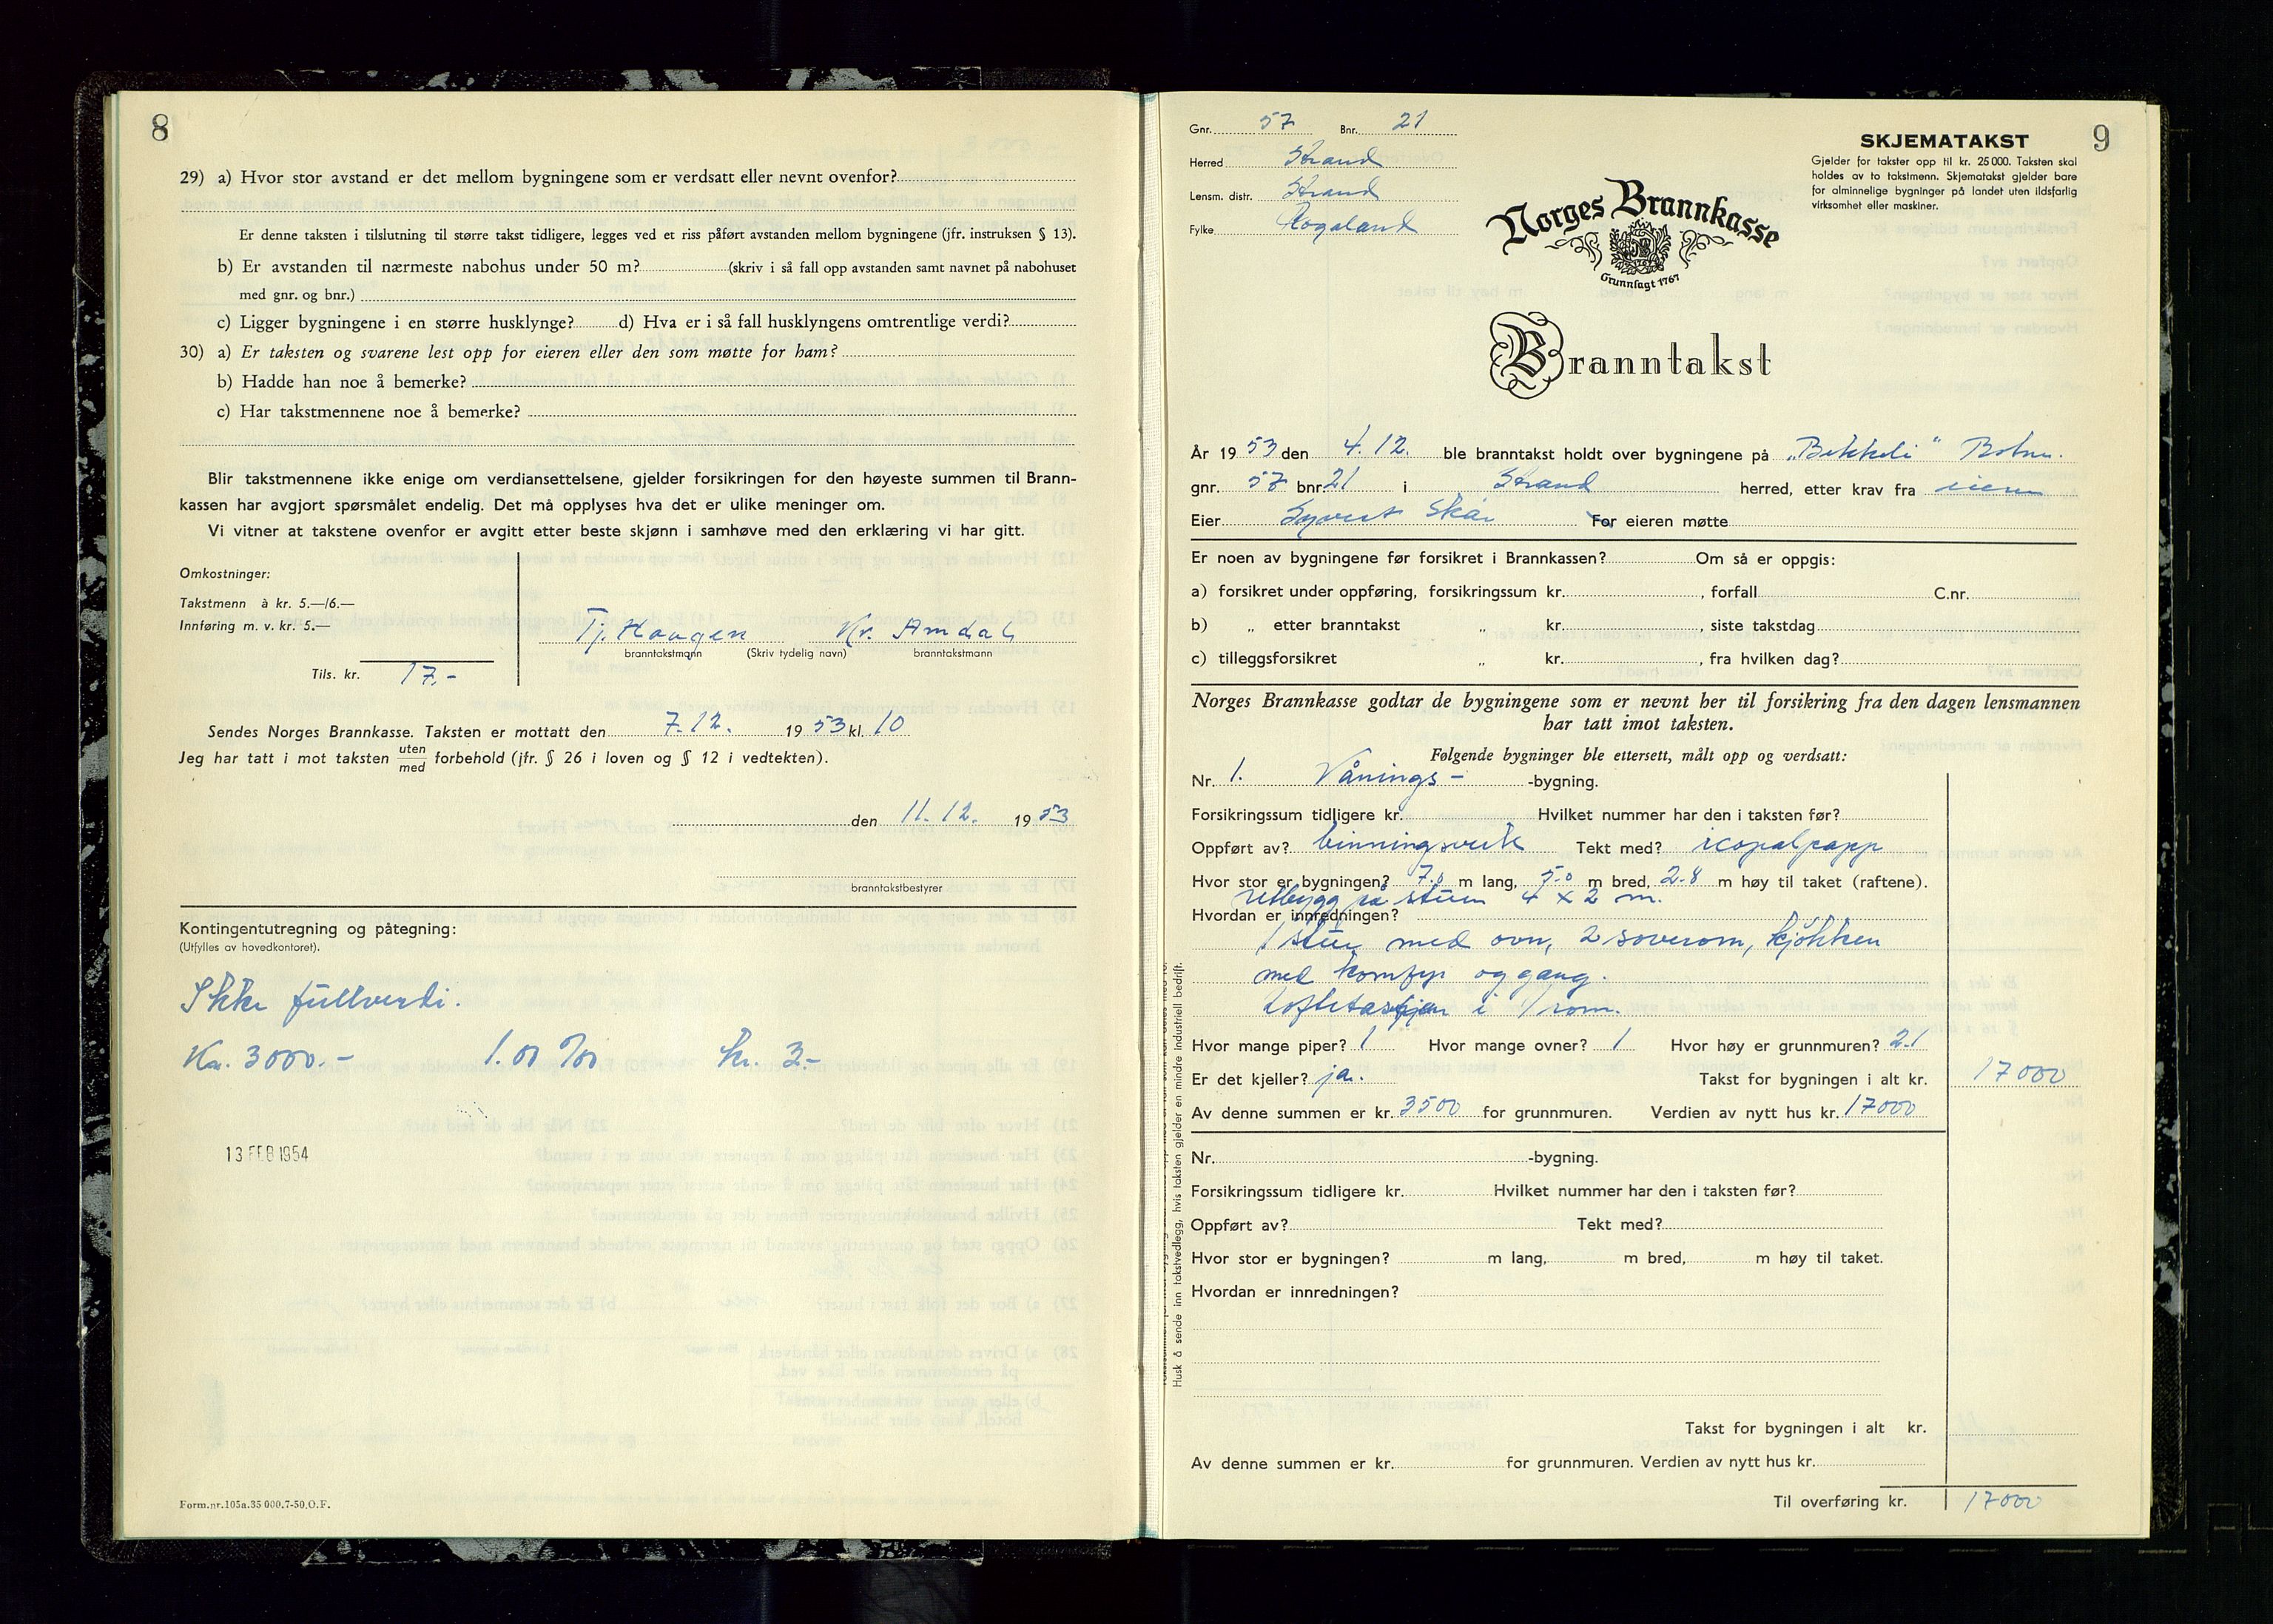 8
29) a) Hvor stor avstand er det mellom bygningene som er verdsatt eller nevnt ovenfor?
Er denne taksten i tilslutning til større takst tidligere, legges ved et riss påført avstanden mellom bygningene (jfr. instruksen § 13).
b) Er avstanden til nærmeste nabohus under 50 m? (skriv i så fall opp avstanden samt navnet på nabohuset
med gnr. og bnr.)
c) Ligger bygningene i en større husklynge? d) Hva er i så fall husklyngens omtrentlige verdi?
30) a) Er taksten og svarene lest opp for eieren eller den som møtte for ham?
b) Hadde han noe å bemerke?
c) Har takstmennene noe å bemerke?
Blir takstmennene ikke enige om verdiansettelsen, gjelder forsikringen for den høyeste summen til Brann-
kassen har avgjort spørsmålet endelig. Det må opplyses hva det er ulike meninger om.
Vi vitner at takstene ovenfor er avgitt etter beste skjønn i samhøve med den erklæring vi har gitt.
Omkostninger:
Takstmenn à kr. 5.—/6.—
Innføring m. v. kr. 5.—
Tj. Haugen Kr. Amdal
branntakstmann (Skriv tydelig navn) branntakstmann
Tils. kr. 17.-
Sendes Norges Brannkasse. Taksten er mottatt den 7.12. 1953 kl. 10
Jeg har tatt i mot taksten uten/med forbehold (jfr. § 26 i loven og § 12 i vedtekten).
den 11.12. 1953
branntakstbestyrer
Kontingentutregning og påtegning:
(Utfylles av hovedkontoret).
Ikke fullverdi.
Kr. 3000.- 1.00 ‰ kr. 3.-
13 FEB 1954
Form.nr.105a.35 000.7-50.O.F.
9
Gnr. 57 Bnr. 21
Herred Strand
Lensm. distr. Strand
Fylke Rogaland
SKJEMATAKST
Gjelder for takster opp til kr. 25 000. Taksten skal
holdes av to takstmenn. Skjematakst gjelder bare
for alminnelige bygninger på landet uten ildsfarlig
virksomhet eller maskiner.
Norges Brannkasse
Grunnlagt 1767
Branntakst
År 1953 den 4.12. ble branntakst holdt over bygningene på „Bekkeli"
gnr. 57 bnr. 21 i Strand herred, etter krav fra eieren
Eier Syvert Skår For eieren møtte
Er noen av bygningene før forsikret i Brannkassen? Om så er oppgis:
a) forsikret under oppføring, forsikringssum kr. , forfall C.nr.
b) „ etter branntakst „ kr. , siste takstdag
c) tilleggsforsikret „ kr. , fra hvilken dag?
Norges Brannkasse godtar de bygningene som er nevnt her til forsikring fra den dagen lensmannen
har tatt imot taksten.
Følgende bygninger ble ettersett, målt opp og verdsatt:
Nr. 1. Vånings- -bygning.
Forsikringssum tidligere kr. Hvilket nummer har den i taksten før?
Oppført av? binningsverk Tekt med? icopalpapp
Hvor stor er bygningen? 7.0 m lang, 5.0 m bred, 2.8 m høy til taket (raftene).
utbygg på stuen 4 x 2 m.
Hvordan er innredningen?
1 stue med ovn, 2 soverom, kjøkken
med komfyr og gang.
i 1 rom.
Hvor mange piper? 1 Hvor mange ovner? 1 Hvor høy er grunnmuren? 2.1
Er det kjeller? ja. Takst for bygningen i alt kr. 17000
Av denne summen er kr. 3500 for grunnmuren. Verdien av nytt hus kr. 17000
Nr. -bygning.
Forsikringssum tidligere kr. Hvilket nummer har den i taksten før?
Oppført av? Tekt med?
Hvor stor er bygningen? m lang, m bred, m høy til taket.
Hvordan er innredningen?
Takst for bygningen i alt kr.
Av denne summen er kr. for grunnmuren. Verdien av nytt hus kr.
Til overføring kr. 17000
Husk å sende inn takstvedlegg, hvis taksten gjelder en mindre industriell bedrift.